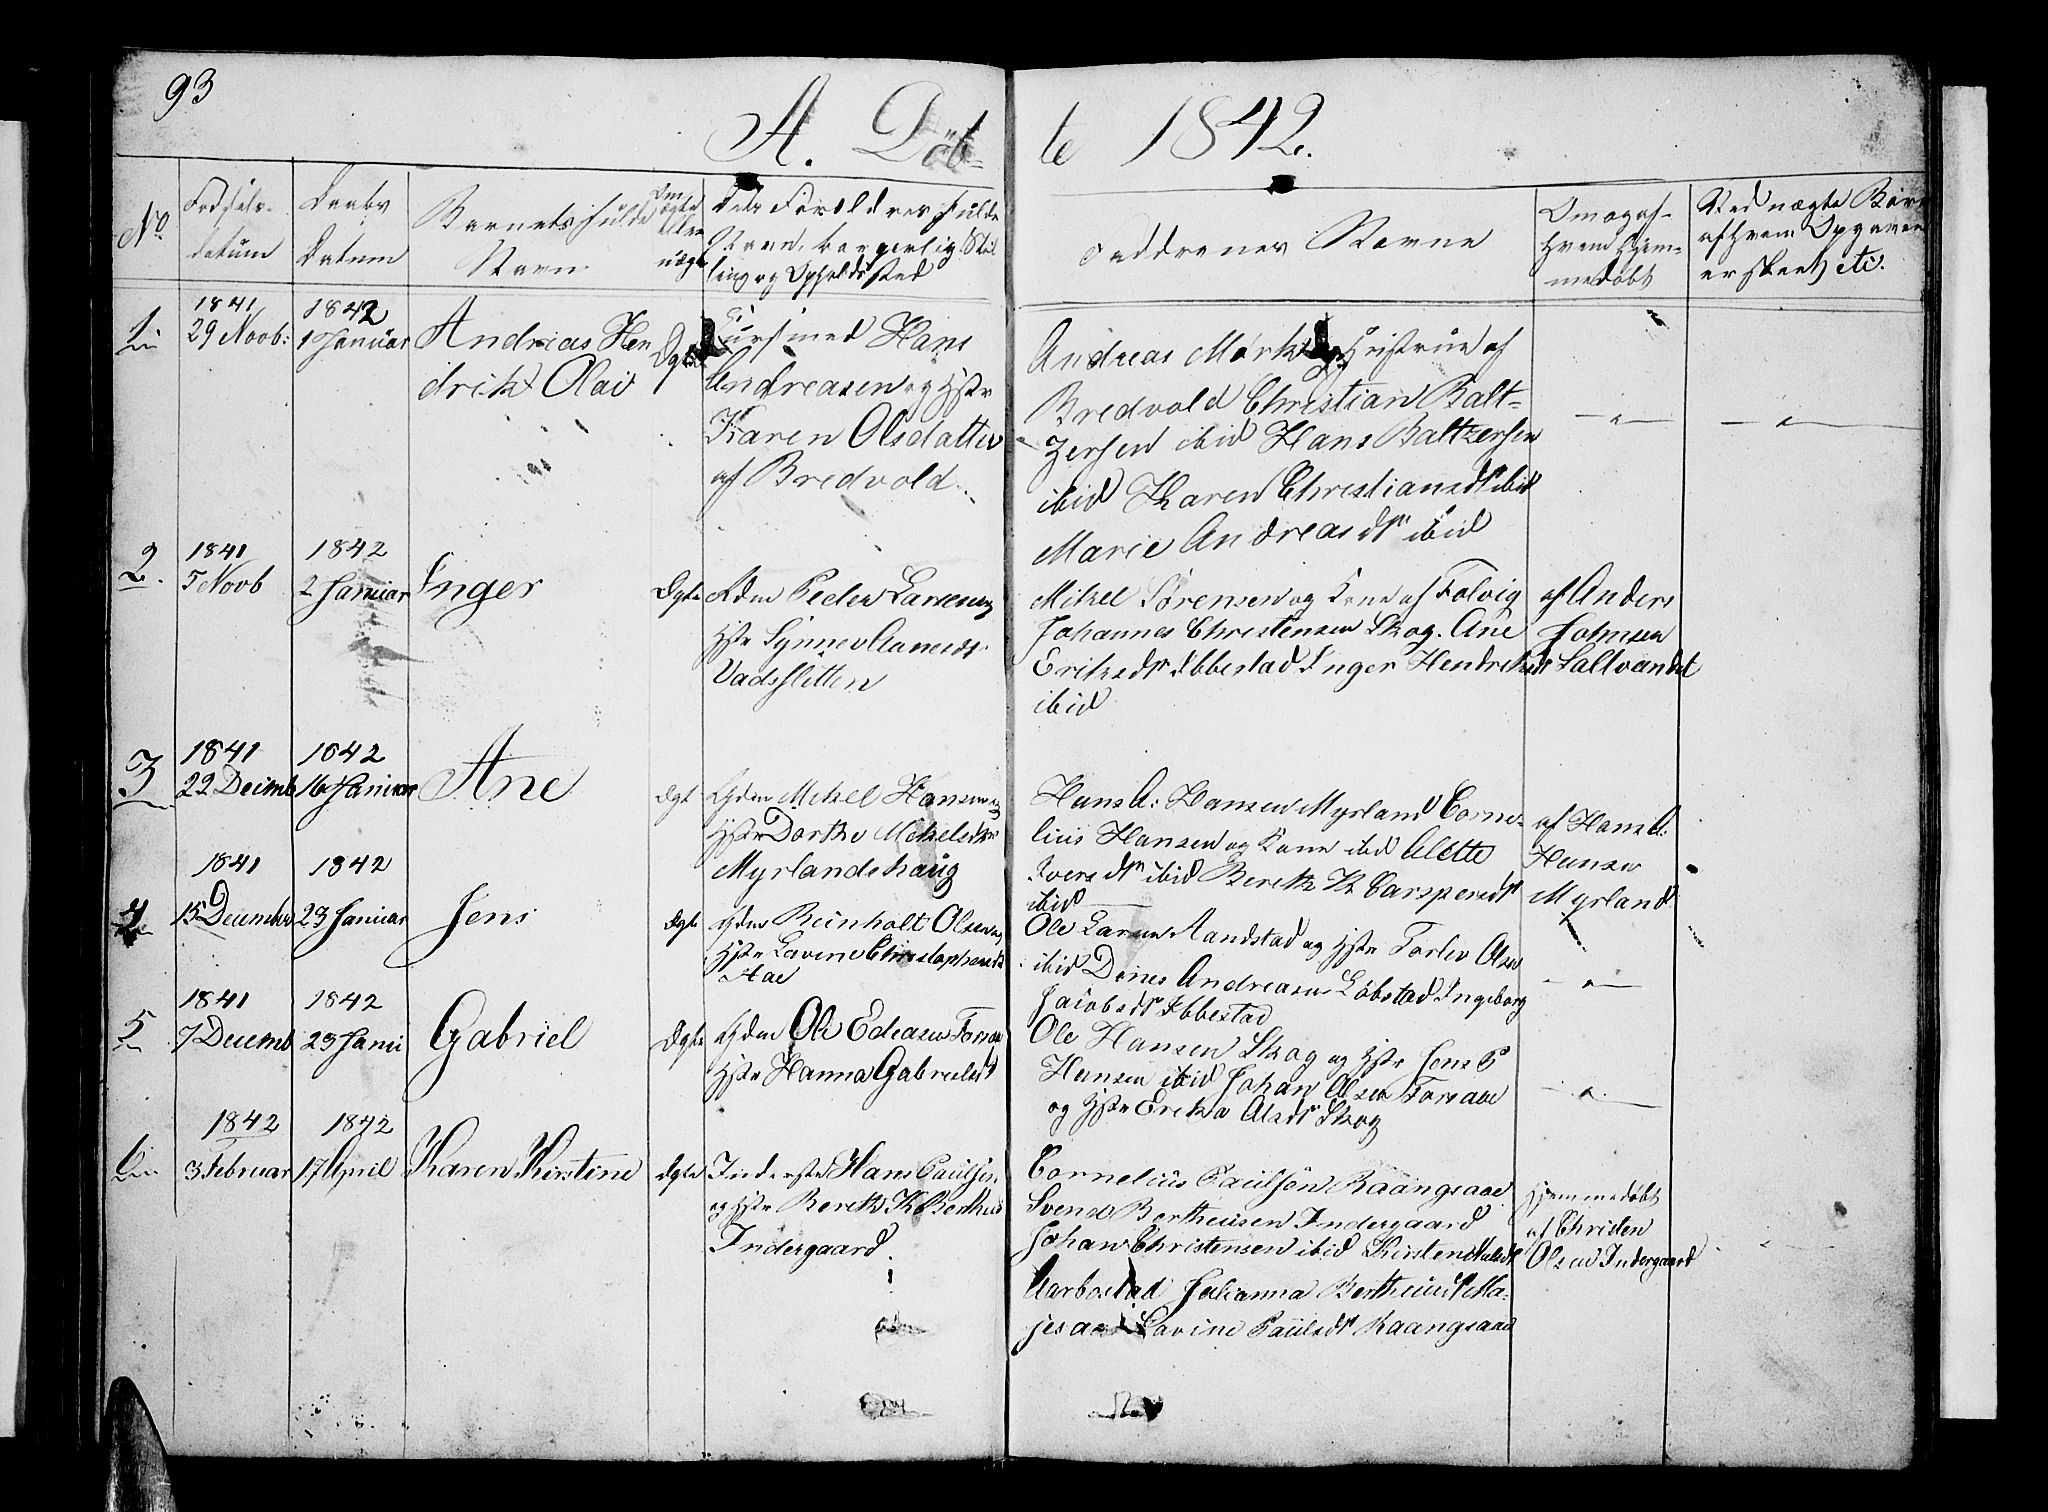 93
A. Döb-
te 1842.
No
Fødsels-
datum
Daabs
Datum
Barnets fulde
Navn
Om
ægte
eller
uægte
Dets Forældres fulde
Navn, borgerlig Stil
ling og Opholdssted
Faddrenes Navne
Om og af
Hvem Hjem-
medøbt
Ved uægte Børn
af Hvem Opgaven
er skeet etc.
1
1841
29 Novb:
1842
1 Januar
Andreas Hen
drik Olai
Ægte
Huusmand Hans
Andreasen og Hstr
Karen Olsdatter
af Bredvold
Andreas Mørk og Hustrue af
Bredvold Christian Balt-
zersen ibid Hans Baltzersen
ibid Karen Christiansdtr ibid
Marie Andreasdtr ibid
2.
1841
5 Novb
1842
2 Januar
Inger
Ægte
Gdm Peder Larsen og
Hstr Synnev
Vadsletten
Mikel Sørensen og Kone af Folvig
Johannes Christensen Skog. Ane
Eriksdtr Ibbestad Inger Hendriksdt
ibid
af Anders
Johnsen
Saltvandet
3
1841
22 Decemb
1842
16 Januar
Ane
Ægt
Gdm Mikel Hansen og
Hstr Dorthe Mikelsdtr
Myrlandshaug
Hans A: Hansen Myrland Corne-
lius Hansen og Kone ibid Alette
Iversdtr ibid Bereth K Caspersdtr
ibid
af Hans A:
Hansen
Myrland
4
1841
15 December
1842
23 Januar
Jens
Ægte
Gdm Reinholt Olsen og
Hstr Lavine Christophersdt
Aae
Ole Larsen Aandstad og Hstr Torlev Olsen
ibid Dines Andreasen Løbstad Ingeborg
Jacobsdtr Ibbestad
5
1841
7 Decemb
1842
23 Janu
Gabriel
Ægte
Gdm Ole Ediasen Forsaae
Hstr Hanna Gabrielsdt
Ole Hansen Skog og Hstr Jens P
Hansen ibid Johan Olsen Forsaae
og Hstr Erika Olsdtr Skog
6
1842
3 Februar
1842
17 April
Karen Kirstine
Ægte
Inderste Hans Paulsen
og Hstr Bereth K Bertheus
Indergaard
Cornelius Paulsøn Raangsaae
Svend Bertheusen Indergaard
Johan Christensen ibid Kirsten
Aarbostad Julianna Bertheusdt Ma-
jesaae Lavine Paulsdtr Raangsaae
Hjemmedøbt
af Christen
Olsen Indergaard